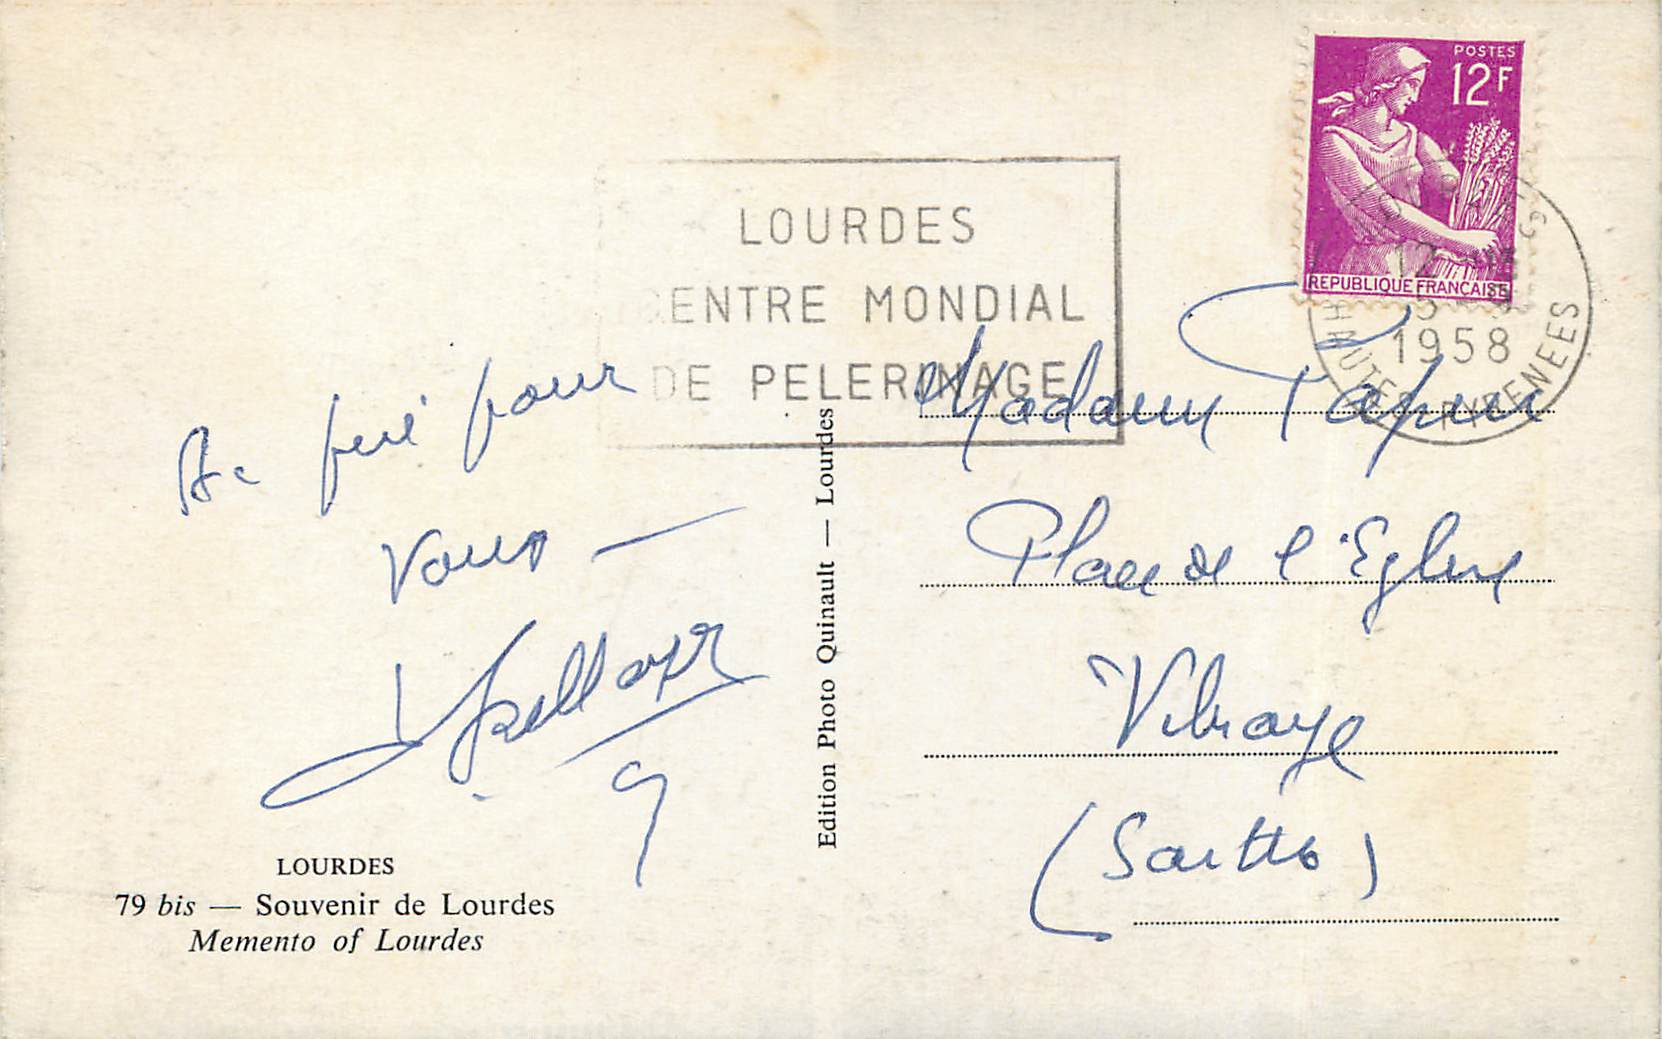 POSTES
12F
REPUBLIQUE FRANÇAISE
LOURDES
CENTRE MONDIAL
DE PELERINAGE
12
5
1958
HAUTES PYRENEES
prié pour
vous —
Madame Papin
Place de l'Eglise
Vibraye
(Sarthe)
Edition Photo Quinault — Lourdes
LOURDES
79 bis — Souvenir de Lourdes
Memento of Lourdes